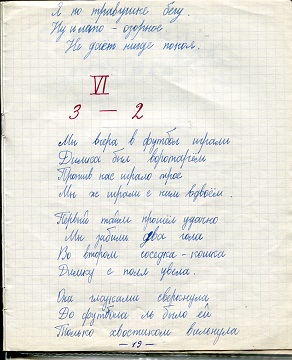 Я по травушке бегу.
Ну и лапо - озорное
Не даст нигде покоя.
VI
3 — 2
Мы вчера в футбол играли
Димка был вратарём
Против нас играло трое
Мы же играли с ним вдвоём.
Первый тайм прошёл удачно
Мы забили два гола
Во втором соседка - кошка
Димку с поля увела.
Она глазками сверкнула
До футбола ль было ей
Только хвостиком вильнула
— 19 —